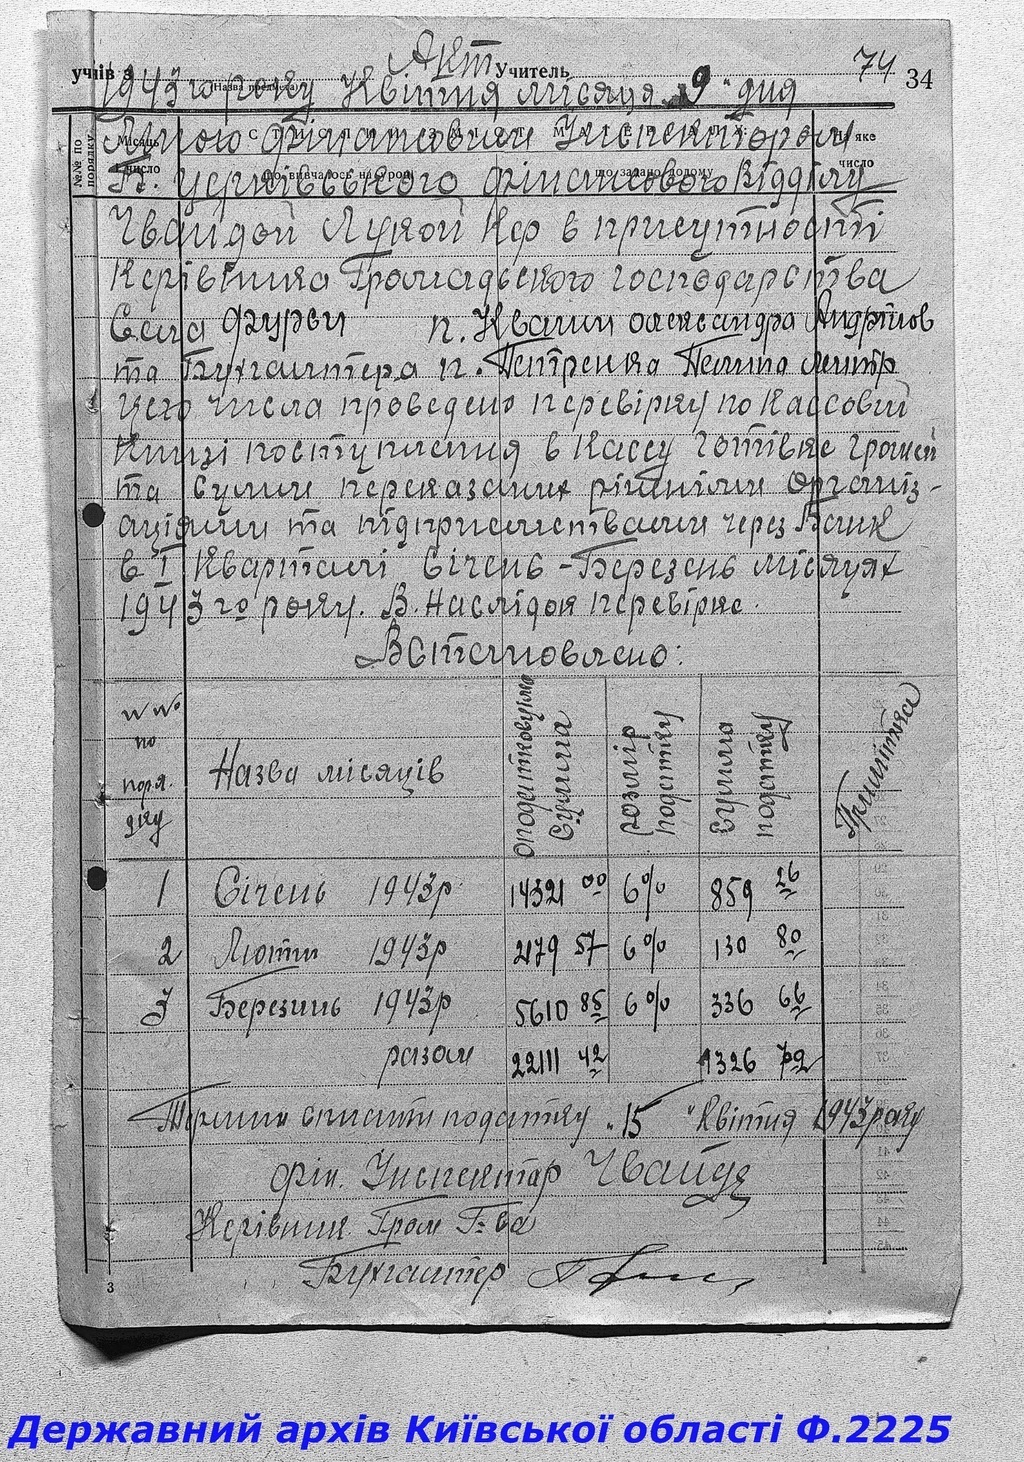 Акт
74
учнів з
Учитель
34
(Назва предмета)
1943 го року Квітня місяця "9" дня
№№ по порядку
Місяць і число
що вивчалось на уроці
що задано додому
На яке число
Мною фінансовим Інспектором
фінансового Відділу
Чвайдой Лукой в присутності
Керівника Громадського господарства
Села Фурси п. Кваши олександра
та Бухгалтера п. Петренка
Цего числа проведено перевірку по Кассовій
Книзі поступлення в Кассу готівке грошей
та Сумм переказаних ріжніми Організ-
аціями та підприємствами через Банк
в І Кварталі Січень - Березень місяцях
1943 го року. В Наслідок перевірке.
Встановлено:
№№ по поря. дку
Назва місяців
Оподатковуєма Сумма
розмір податку
Сумма податку
Примітка
1 Січень 1943р 14321 00 6% 859 26
2 Лютий 1943р 2179 57 6% 130 80
3 Березинь 1943р 5610 85 6% 336 66
разом 22111 42 1326 72
Термин сплати податку "15" Квітня 1943 року
Фін. Інспектор Чвайда
Керівник Гром Г-ва
Бухгалтер
3
Державний архів Київської області Ф.2225